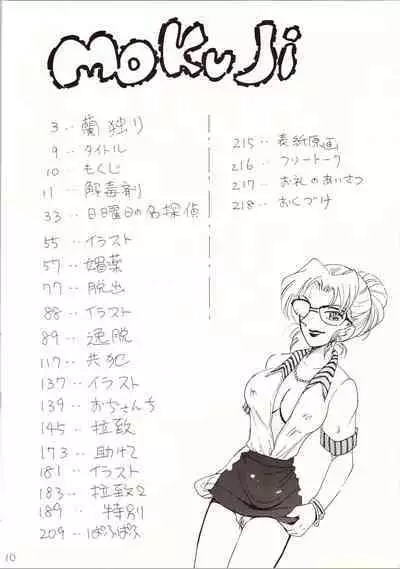 MOKUJi
3‥蘭独り
9‥タイトル
10‥もくじ
11‥解毒剤
33‥日曜日の名探偵
55‥イラスト
57‥媚薬
77‥脱出
88‥イラスト
89‥逸脱
117‥共犯
137‥イラスト
139‥おぢさんち
145‥拉致
173‥助けて
181‥イラスト
183‥拉致2
189‥特別
209‥ぱふぱふ
215‥表紙原画
216‥フリートーク
217‥お礼のあいさつ
218‥おくづけ
10